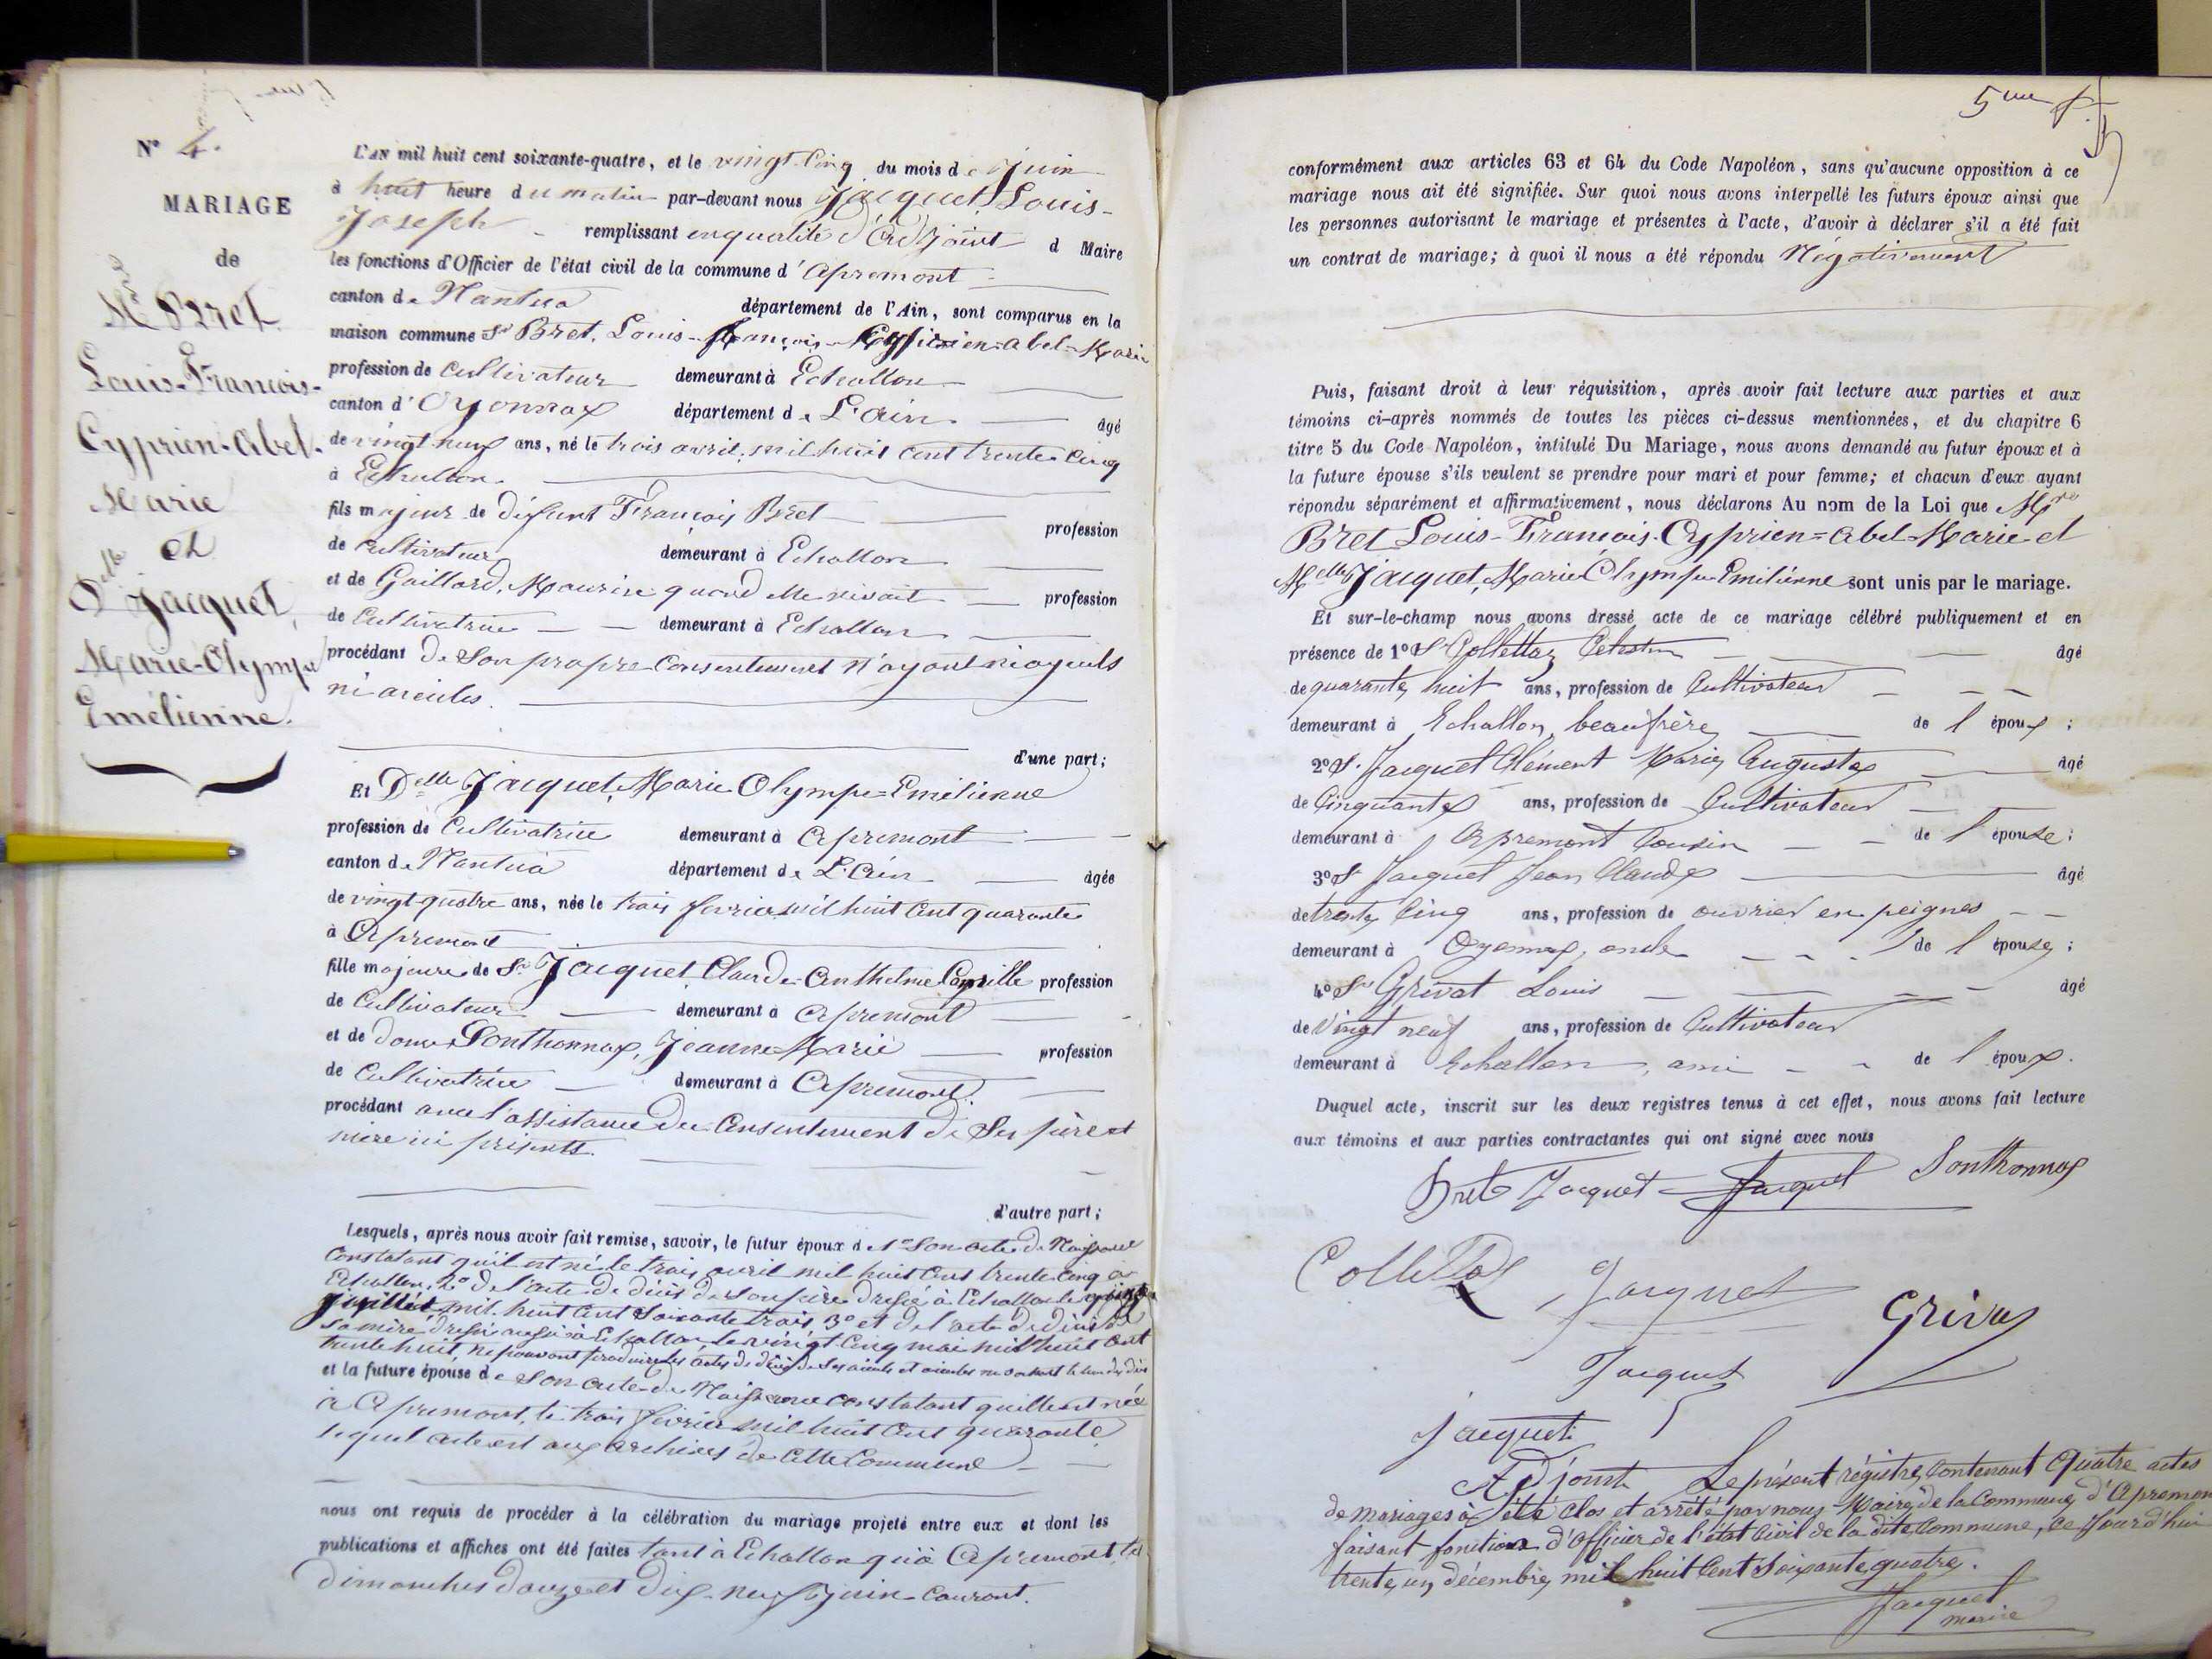 N° 4.
MARIAGE
de
Mr Bret
Louis-François-
Cyprien-Abel-
Marie
et
Delle Jacquet,
Marie-Olympe
Emélienne.
L'AN mil huit cent soixante-quatre, et le vingt-cinq du mois de juin
à huit heure du matin par-devant nous Jacquet, Louis-
Joseph remplissant en qualité d'Adjoint d Maire
les fonctions d'Officier de l'état civil de la commune d'Apremont
canton de Nantua département de l'Ain, sont comparus en la
maison commune Sr Bret, Louis-François-Cyprien-Abel-Marie
profession de Cultivateur demeurant à Echallon
canton d'Oyonnax département de L'Ain âgé
de vingt neuf ans, né le trois avril, mil huit cent trente cinq
à Echallon.
fils majeur de défunt François Bret profession
de cultivateur demeurant à Echallon
et de Gaillard, Maurise quand elle vivait profession
de Cultivatrice demeurant à Echallon
procédant de son propre Consentement n'ayant ni ayeuls
ni aieules.
d'une part;
Et Delle Jacquet, Marie Olympe=Emélienne
profession de Cultivatrice demeurant à Apremont
canton de Nantua département de L'Ain âgée
de vingt-quatre ans, née le trois fevrier mil huit Cent quarante
à Apremont
fille majeure de Sr Jacquet, Claude-Anthelme Camille profession
de Cultivateur demeurant à Apremont
et de dame Sonthonnax, Jeanne-Marie profession
de Cultivatrice demeurant à Apremont.
procédant avec l'assistance du Consentement de Ses père et
mère ici présents.
d'autre part;
Lesquels, après nous avoir fait remise, savoir, le futur époux de 1° Son acte de Naissance
Constatant qu'il est né le trois avril mil huit Cent trente cinq à
Echallon, 2° de l'acte de décès de son père dressé à Echallon le
juillet mil huit Cent Soixante trois, 3° et de l'acte de décès de
sa mère dressé aussi à Echallon, le vingt Cinq mai mil huit Cent
trente huit, ne pouvant produire les actes de décès de ses aieuls et aieules
et la future épouse de Son acte de Naissance constatant quelle est née
à Apremont, le trois fevrier mil huit Cent quarante
lequel acte est aux archives de Cette Commune
nous ont requis de procéder à la célébration du mariage projeté entre eux et dont les
publications et affiches ont été faites tant à Echallon qu'à Apremont, les
dimanches douze et dix-neuf juin Courant.
5me f
conformément aux articles 63 et 64 du Code Napoléon, sans qu'aucune opposition à ce
mariage nous ait été signifiée. Sur quoi nous avons interpellé les futurs époux ainsi que
les personnes autorisant le mariage et présentes à l'acte, d'avoir à déclarer s'il a été fait
un contrat de mariage; à quoi il nous a été répondu Négativement
Puis, faisant droit à leur réquisition, après avoir fait lecture aux parties et aux
témoins ci-après nommés de toutes les pièces ci-dessus mentionnées, et du chapitre 6
titre 5 du Code Napoléon, intitulé Du Mariage, nous avons demandé au futur époux et à
la future épouse s'ils veulent se prendre pour mari et pour femme; et chacun d'eux ayant
répondu séparément et affirmativement, nous déclarons Au nom de la Loi que Mr
Bret Louis-François-Cyprien=Abel-Marie et
Melle Jacquet, Marie Olympe Emélienne sont unis par le mariage.
Et sur-le-champ nous avons dressé acte de ce mariage célébré publiquement et en
présence de 1° Sr Collettaz Célestin âgé
de quarante huit ans, profession de Cultivateur
demeurant à Echallon, beau frère de l'époux;
2° Sr Jacquet Clément Marie Auguste âgé
de Cinquante ans, profession de Cultivateur
demeurant à Apremont Cousin de l'épouse;
3° Sr Jacquet Jean Claude âgé
de trente Cinq ans, profession de ouvrier en peignes
demeurant à Oyonnax, oncle de l'épouse;
4° Sr Grivat Louis âgé
de vingt neuf ans, profession de Cultivateur
demeurant à Echallon, ami de l'époux.
Duquel acte, inscrit sur les deux registres tenus à cet effet, nous avons fait lecture
aux témoins et aux parties contractantes qui ont signé avec nous
Bret Jacquet Jacquet Sonthonnax
Collettaz Jacquet
Grivat
Jacquet
Jacquet
Adjoint Le présent régistre, Contenant Quatre actes
de mariages à été clos et arrêté par nous Maire de la Commune d'Apremont
faisant fonctions d'Officier de l'état Civil de la dite Commune, ce Jourd'hui
trente un décembre mil huit Cent Soixante quatre.
Jacquet
maire